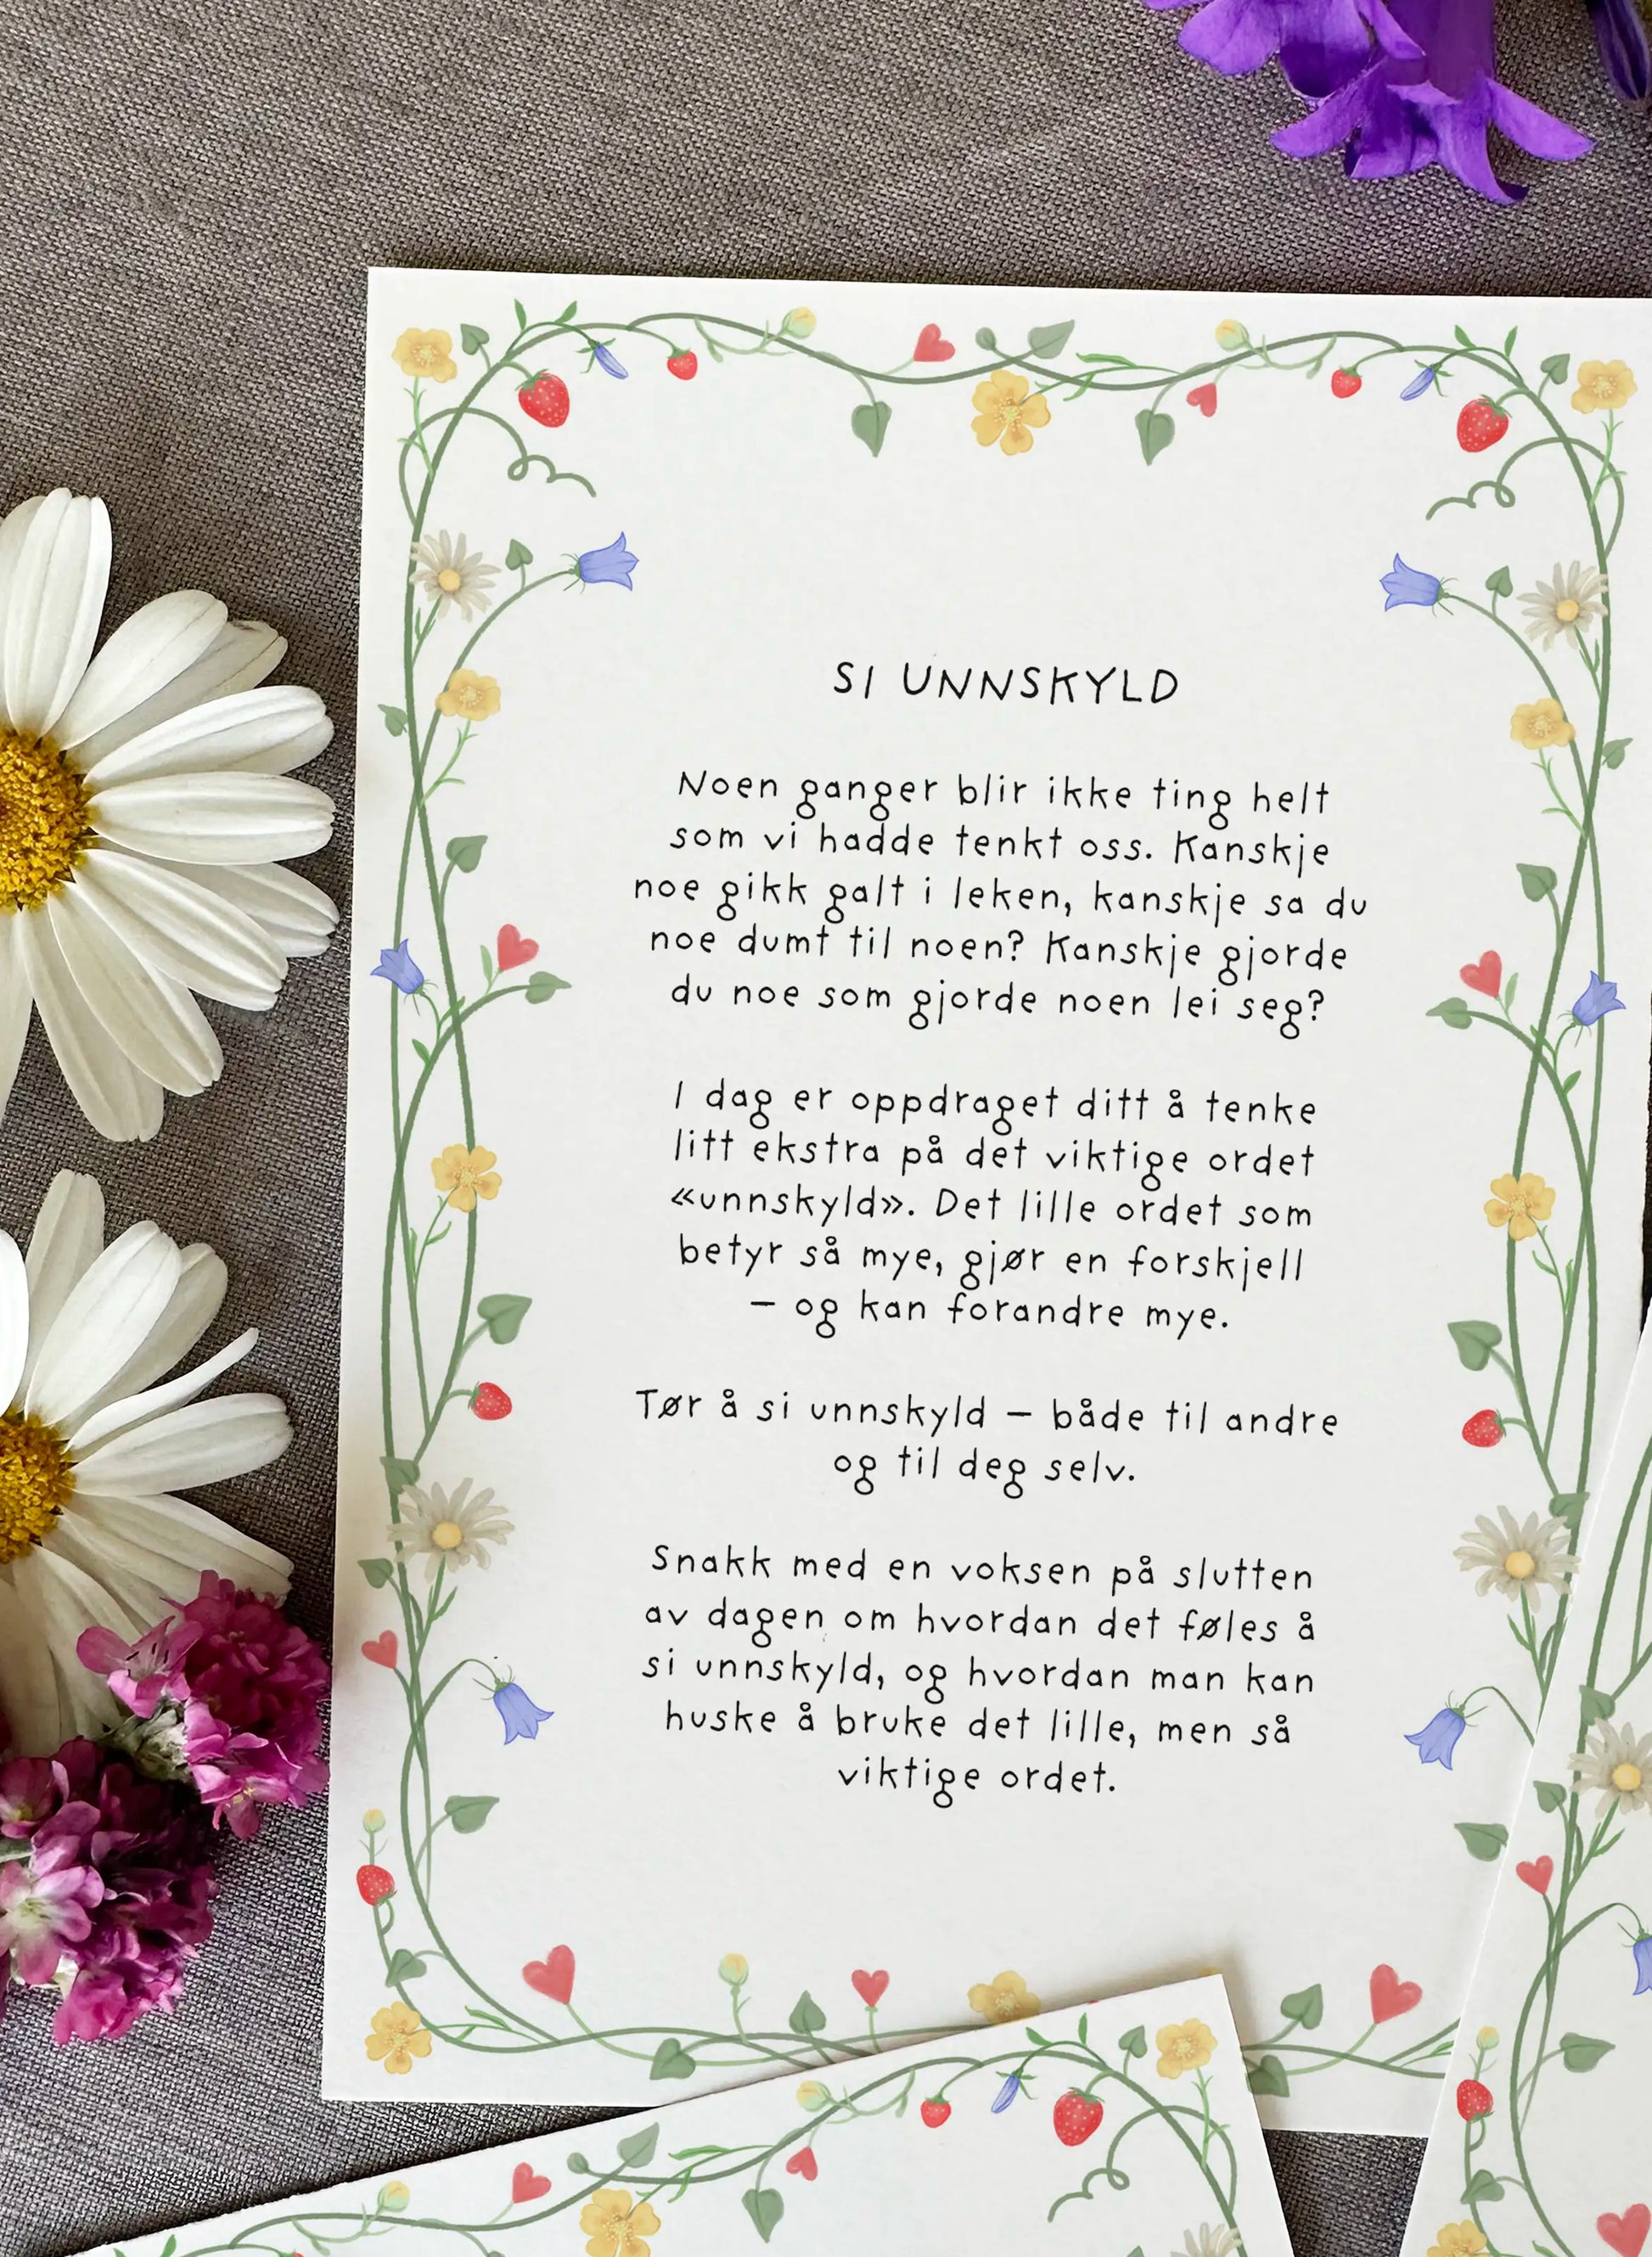 SI UNNSKYLD
Noen ganger blir ikke ting helt
som vi hadde tenkt oss. Kanskje
noe gikk galt i leken, kanskje sa du
noe dumt til noen? Kanskje gjorde
du noe som gjorde noen lei seg?
I dag er oppdraget ditt å tenke
litt ekstra på det viktige ordet
«unnskyld». Det lille ordet som
betyr så mye, gjør en forskjell
– og kan forandre mye.
Tør å si unnskyld – både til andre
og til deg selv.
Snakk med en voksen på slutten
av dagen om hvordan det føles å
si unnskyld, og hvordan man kan
huske å bruke det lille, men så
viktige ordet.